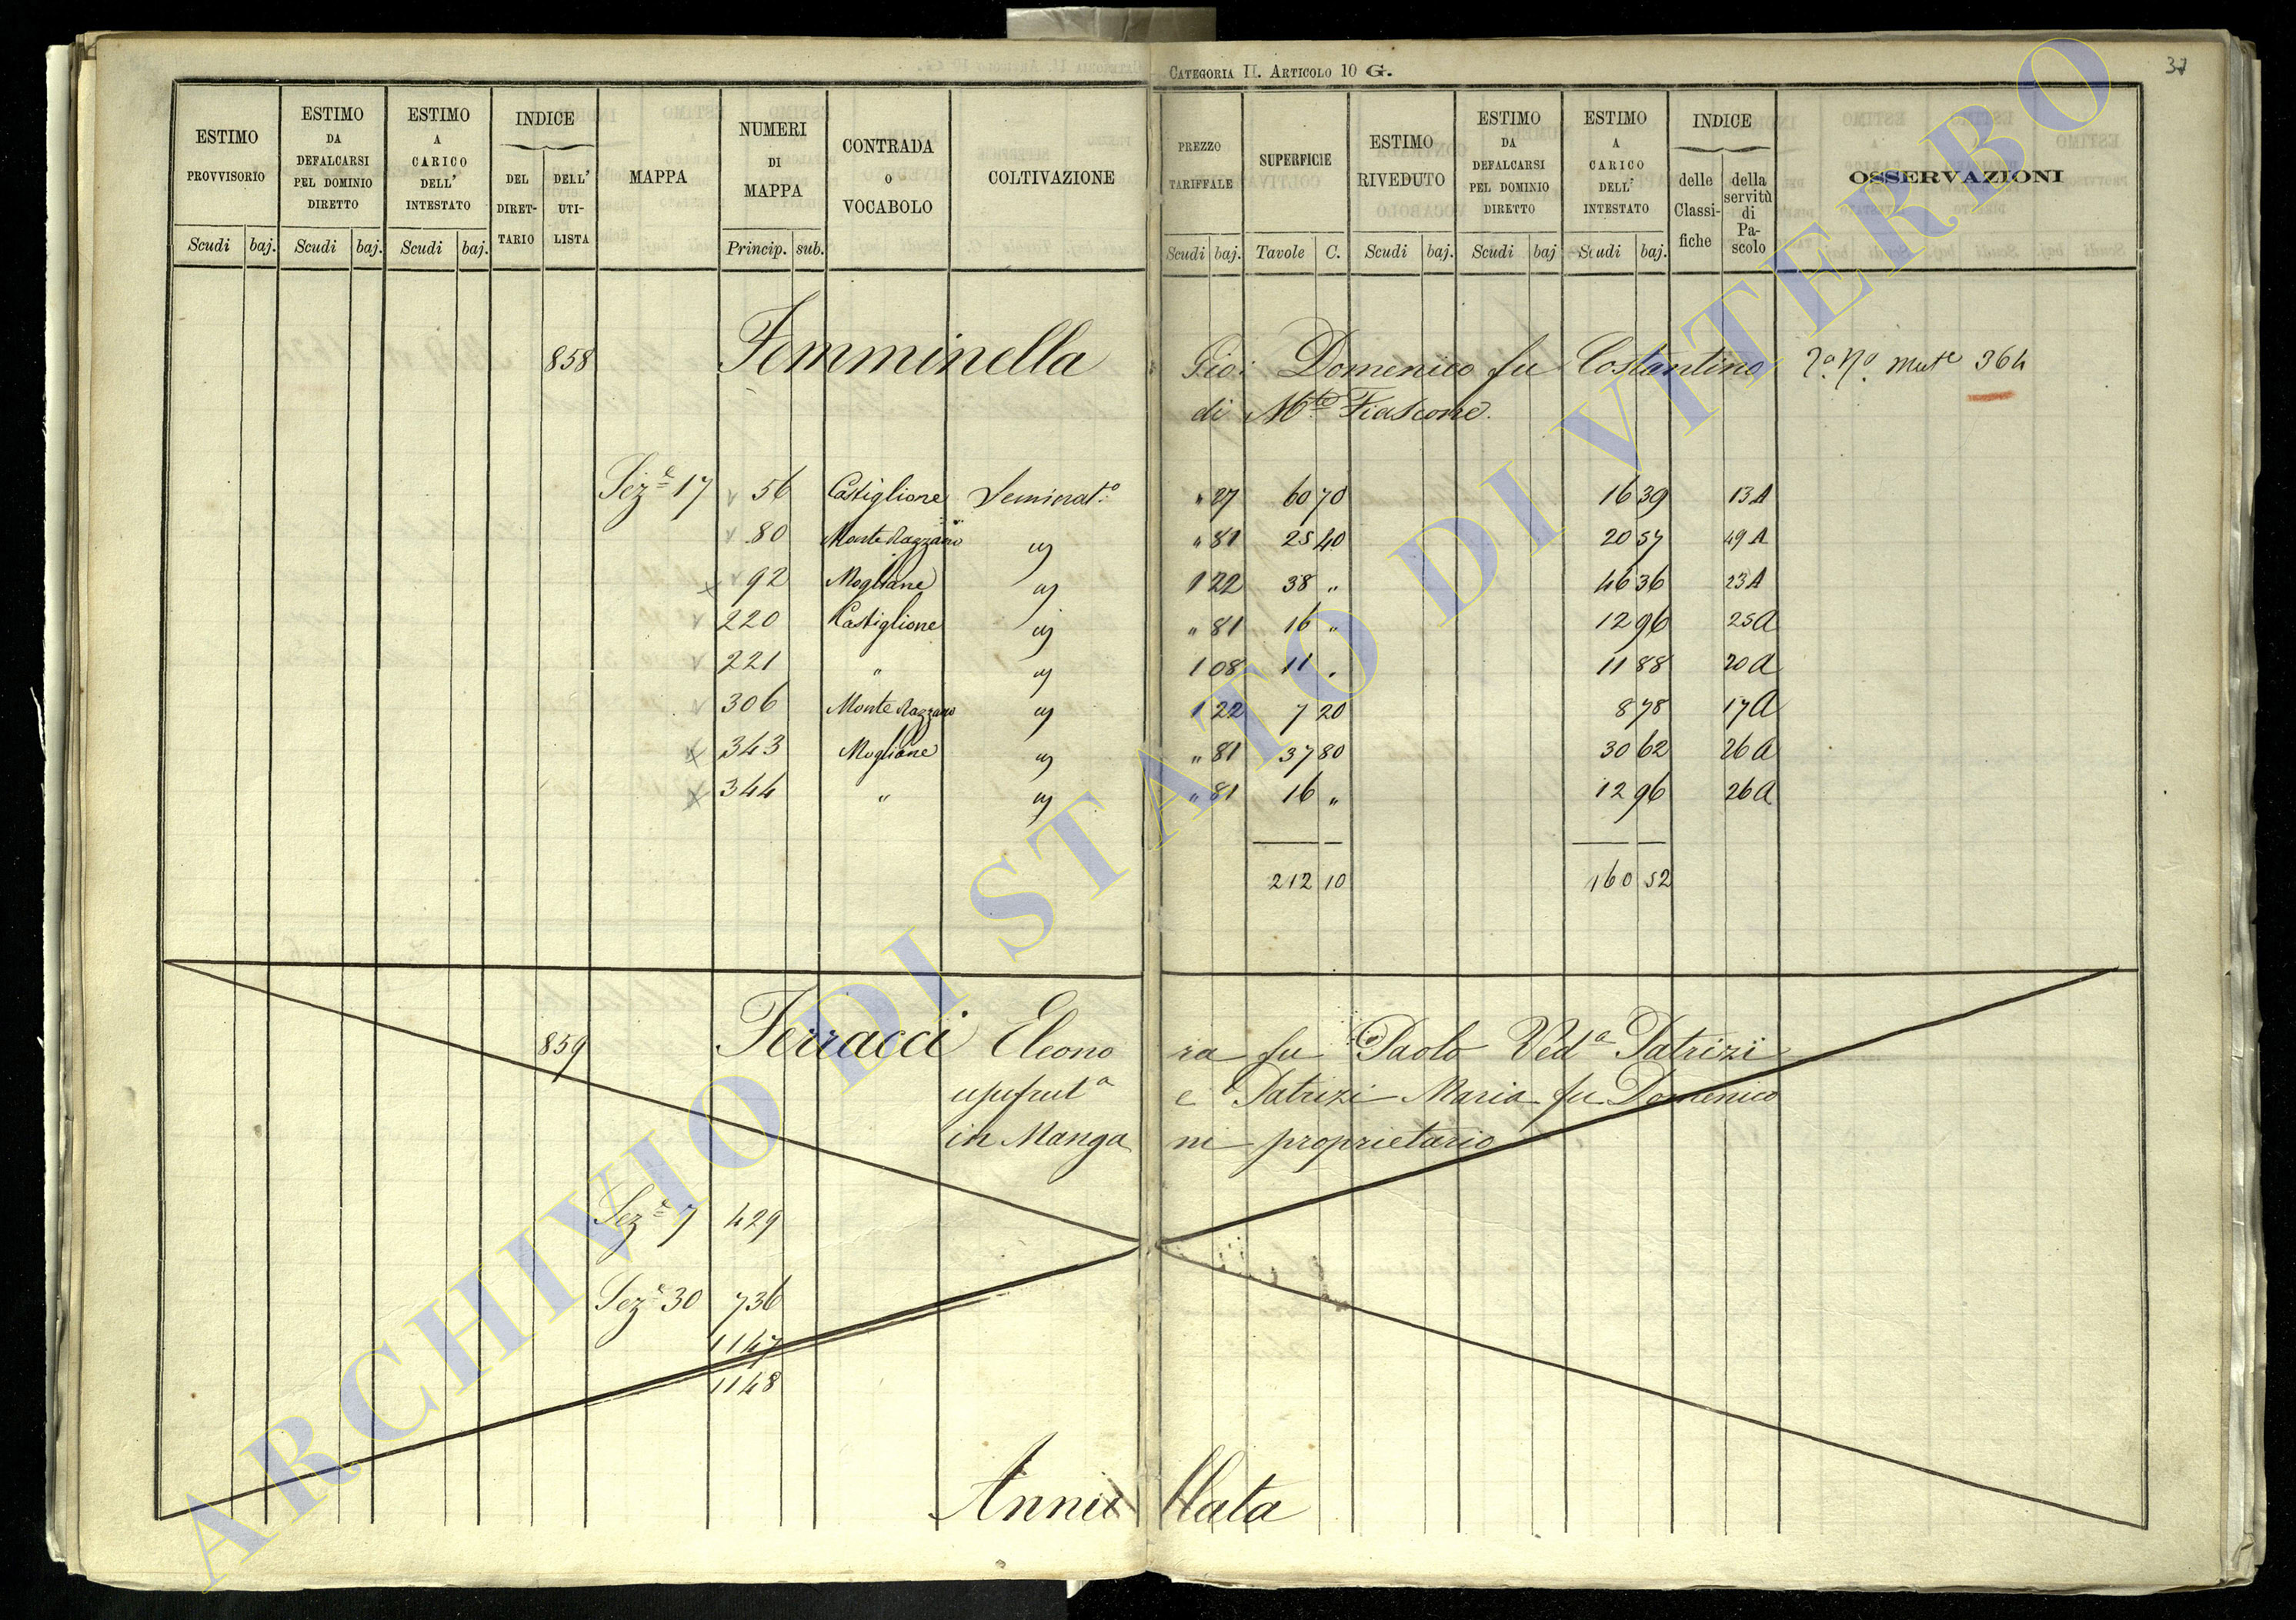 CATEGORIA II. ARTICOLO 10 G.
37
ESTIMO PROVVISORIO
ESTIMO DA DEFALCARSI PEL DOMINIO DIRETTO
ESTIMO A CARICO DELL' INTESTATO
INDICE
DEL DIRET-TARIO
DELL' UTI-LISTA
MAPPA
NUMERI DI MAPPA
CONTRADA O VOCABOLO
COLTIVAZIONE
PREZZO TARIFFALE
SUPERFICIE
ESTIMO RIVEDUTO
ESTIMO DA DEFALCARSI PEL DOMINIO DIRETTO
ESTIMO A CARICO DELL' INTESTATO
INDICE
delle Classi-fiche
della servitù di Pa-scolo
OSSERVAZIONI
Scudi baj. Scudi baj. Scudi baj. Princip. sub. Scudi baj. Tavole C. Scudi baj. Scudi baj Scudi baj.
858 Femminella Gio: Domenico fu Costantino
di M.te Fiascone. mut.e 364
Sez.e 17 56 Castiglione Seminat.o " 27 60 70 16 39 13 A
80 Monte Razzano " 81 25 40 20 57 49 A
92 Mogliane 1 22 38 " 46 36 23 A
220 Castiglione " 81 16 " 12 96 25 A
221 " 1 08 11 " 11 88 20 A
306 Monte Razzano 1 22 7 20 8 78 17 A
343 Mogliane " 81 37 80 30 62 26 A
344 " " 81 16 " 12 96 26 A
212 10 160 52
859 Ferracci Eleonora fu Paolo Ved.a Patrizi
usufrut.a e Patrizi Maria fu Domenico
in Mangani proprietario
Sez.e 7 429
Sez.e 30 736
1147
1148
Annullata
ARCHIVIO DI STATO DI VITERBO